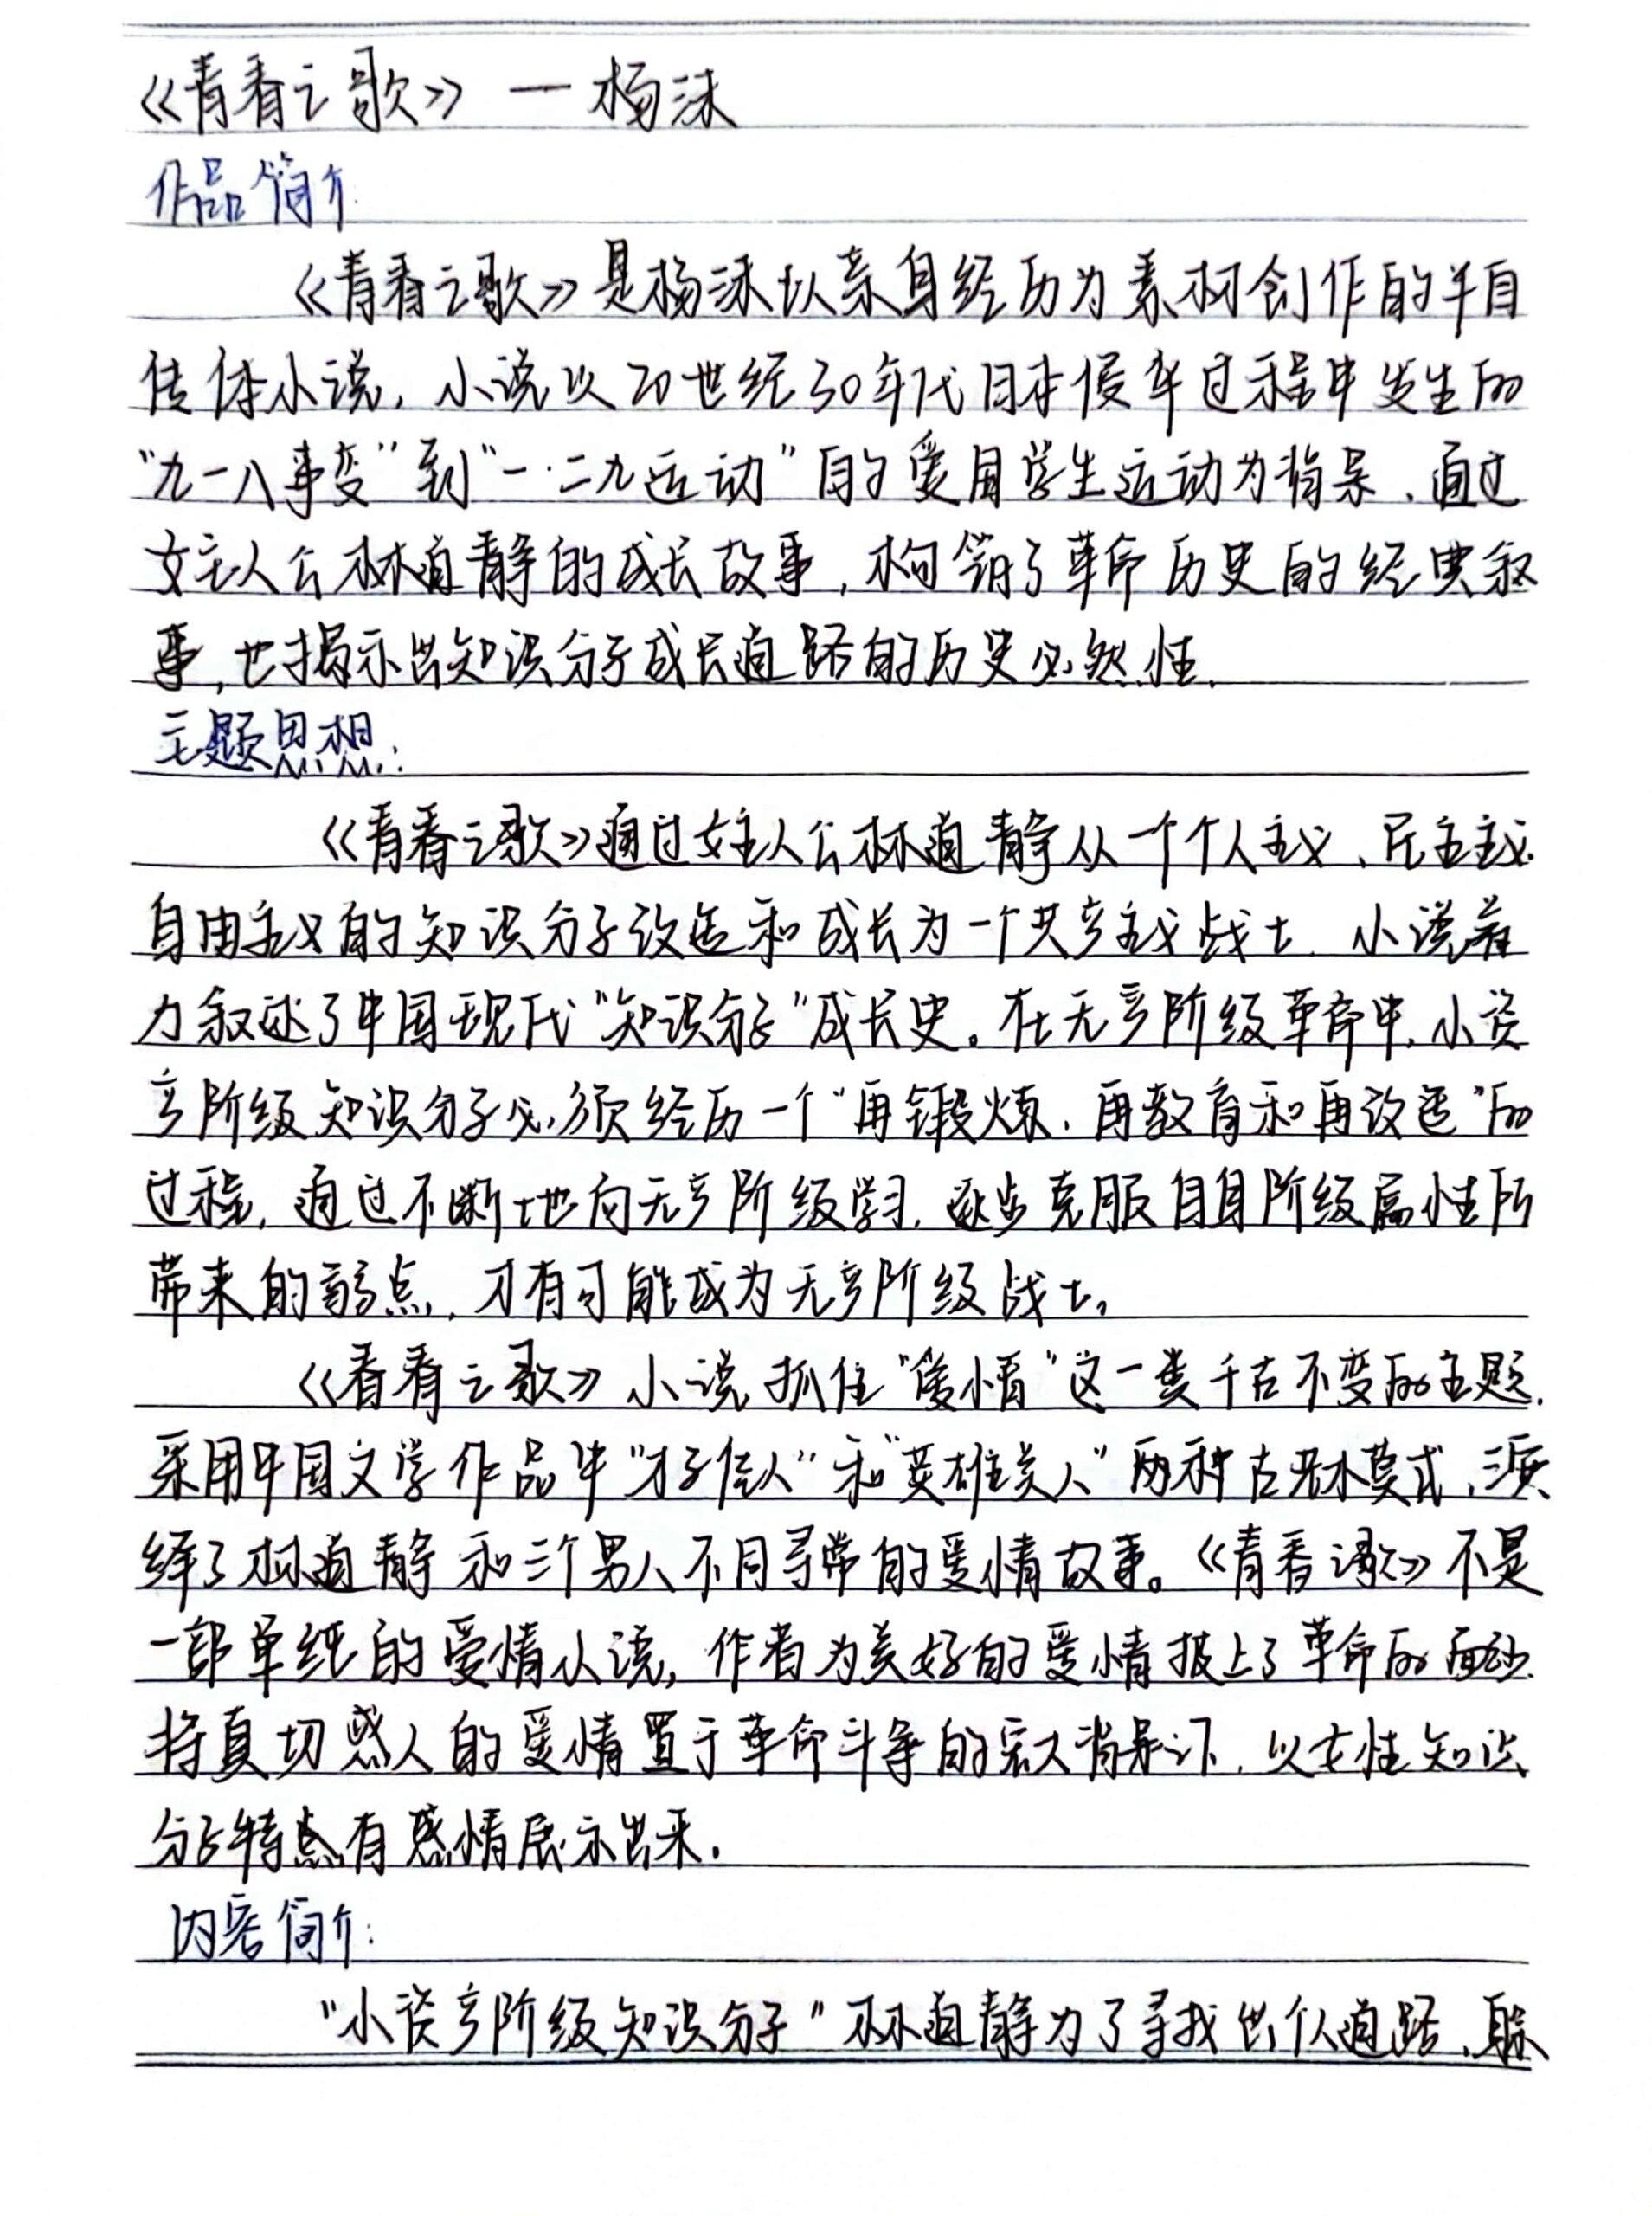 《青春之歌》—杨沫
作品简介:
《青春之歌》是杨沫以亲身经历为素材创作的半自
传体小说,小说以20世纪30年代日本侵华过程中发生的
“九一八事变”到“一·二九运动”的爱国学生运动为背景,通过
女主人公林道静的成长故事,构筑了革命历史的经典叙
事,也揭示出知识分子成长道路的历史必然性.
主题思想:
《青春之歌》通过女主人公林道静从一个个人主义、民主主义.
自由主义的知识分子改造和成长为一个共产主义战士.小说着
力叙述了中国现代“知识分子”成长史。在无产阶级革命中,小资
产阶级知识分子必须经历一个“再锻炼、再教育和再改造”的
过程,通过不断地向无产阶级学习,逐步克服自身阶级属性所
带来的弱点,才有可能成为无产阶级战士。
《青春之歌》小说抓住“爱情”这一类千古不变的主题.
采用中国文学作品中“才子佳人”和“英雄美人”两种古老模式,演
绎了林道静和三个男人不同寻常的爱情故事。《青春之歌》不是
一部单纯的爱情小说,作者为美好的爱情披上了革命的面纱.
将真切感人的爱情置于革命斗争的宏大背景下,以女性知识
分子特点有感情展示出来.
内容简介:
“小资产阶级知识分子”林道静为了寻找出个人道路、躲